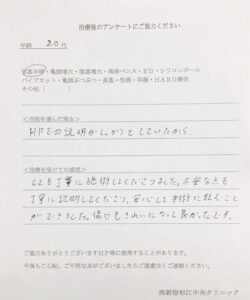 治療後のアンケートにご協力ください
年齢 20代
包茎手術・亀頭増大・陰茎増大・滑曲ペニス・ED・シリコンボール
パイプカット・亀頭ぶつぶつ・長茎・性病・早漏・HARG療法
その他（ ）
＜当院を選んだ理由＞
HPでの説明がしっかりとしていたから
＜治療を受けての感想＞
とても丁寧に施術してくださりました。不安な点も
丁寧に説明してくださり、安心して手術に臨むこと
ができました。傷口もきれいになって良かったです。
ご協力ありがとうございますHP等に使用することがあります。
今後もご心配、ご不明な点がございましたらご遠慮なくご連絡ください。
西新宿杉江中央クリニック